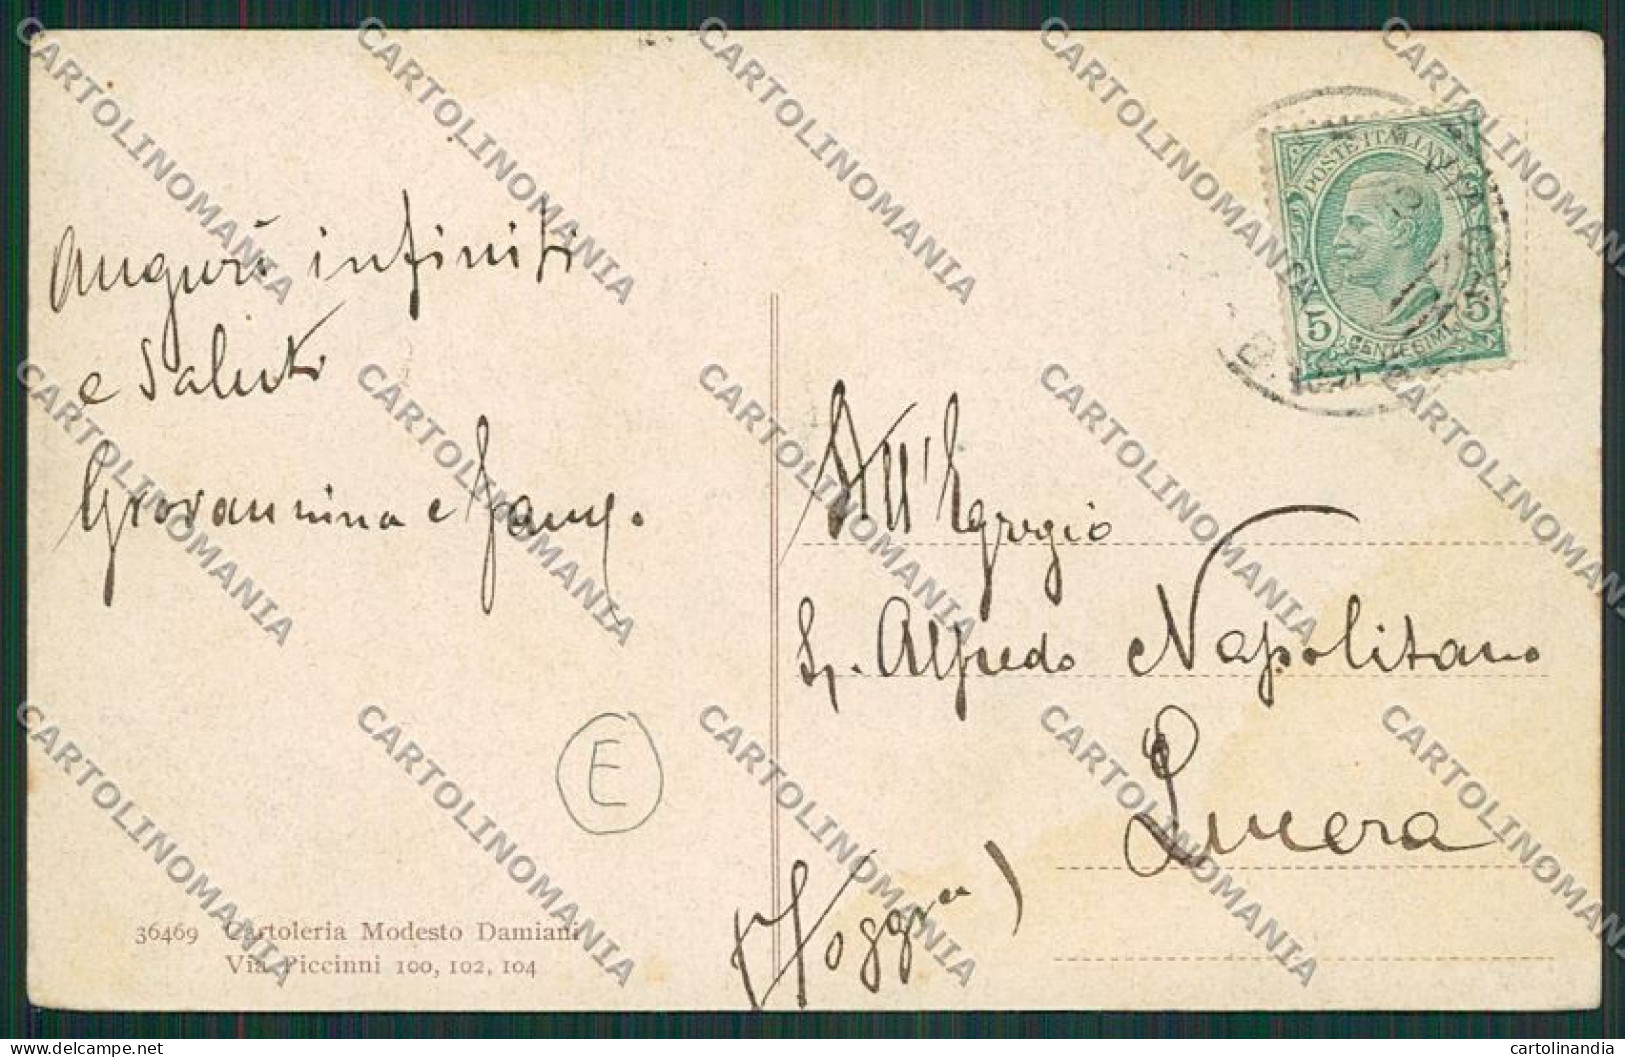 Auguri infiniti
e Saluti
Giovannina e Fam.
36469 Cartoleria Modesto Damiani
Via Piccinni 100, 102, 104
E
POSTE ITALIANE
5 CENTESIMI 5
All'Egregio
Sig. Alfredo Napolitano
Lucera
(Foggia)
CARTOLINOMANIA
www.delcampe.net
cartolinandia